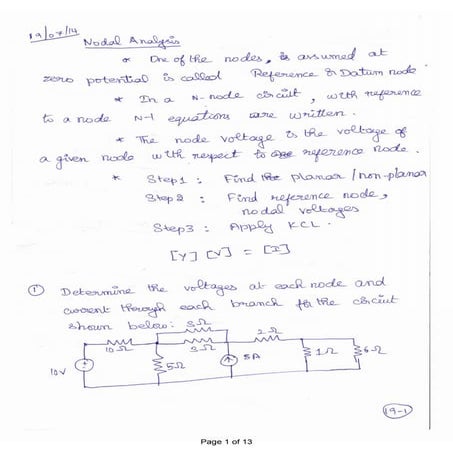 19/07/14
Nodal Analysis
* One of the nodes, is assumed at
zero potential is called Reference & Datum node.
* In a N-node circuit, with reference
to a node N-1 equations are written.
* The node voltage is the voltage of
a given node with respect to reference node.
* Step1 : Find the planar / non-planar
Step2 : Find reference node,
nodal voltages
Step3 : Apply KCL.
[Y] [V] = [I]
① Determine the voltages at each node and
current through each branch for the circuit
shown below:
3Ω
10Ω 3Ω 2Ω
10V 5Ω 5A 1Ω 6Ω
19-1
Page 1 of 13